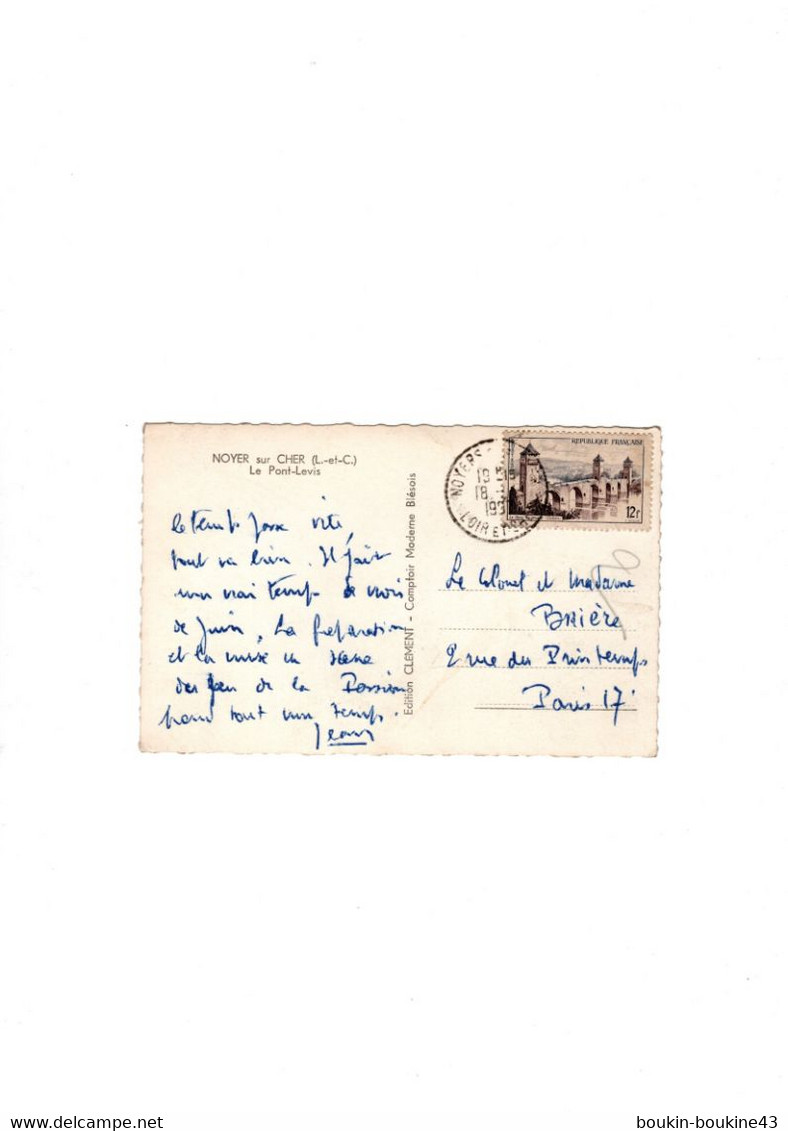 NOYER sur CHER (L.-et-C.)
Le Pont-Levis
le temps passe vite,
tout va bien. Il fait
un vrai temps de mois
de Juin. La préparation
et la mise en scène
du Jeu de la Passion
prend tout mon temps.
Jean
Edition CLEMENT - Comptoir Moderne Blésois
REPUBLIQUE FRANÇAISE
12f
NOYERS
19
18
LOIR ET
Le Colonel et Madame
BRIÈRE
2 rue du Printemps
Paris 17
boukin-boukine43